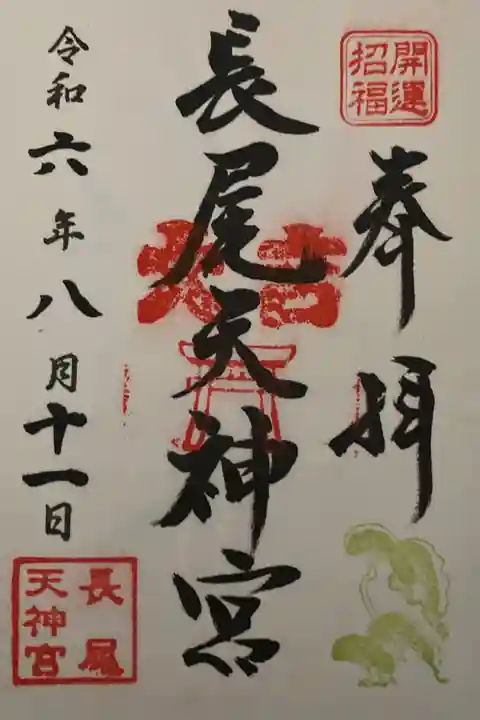 開運
招福
奉拝
長尾天神宮
大吉
令和六年八月十一日
長尾
天神宮